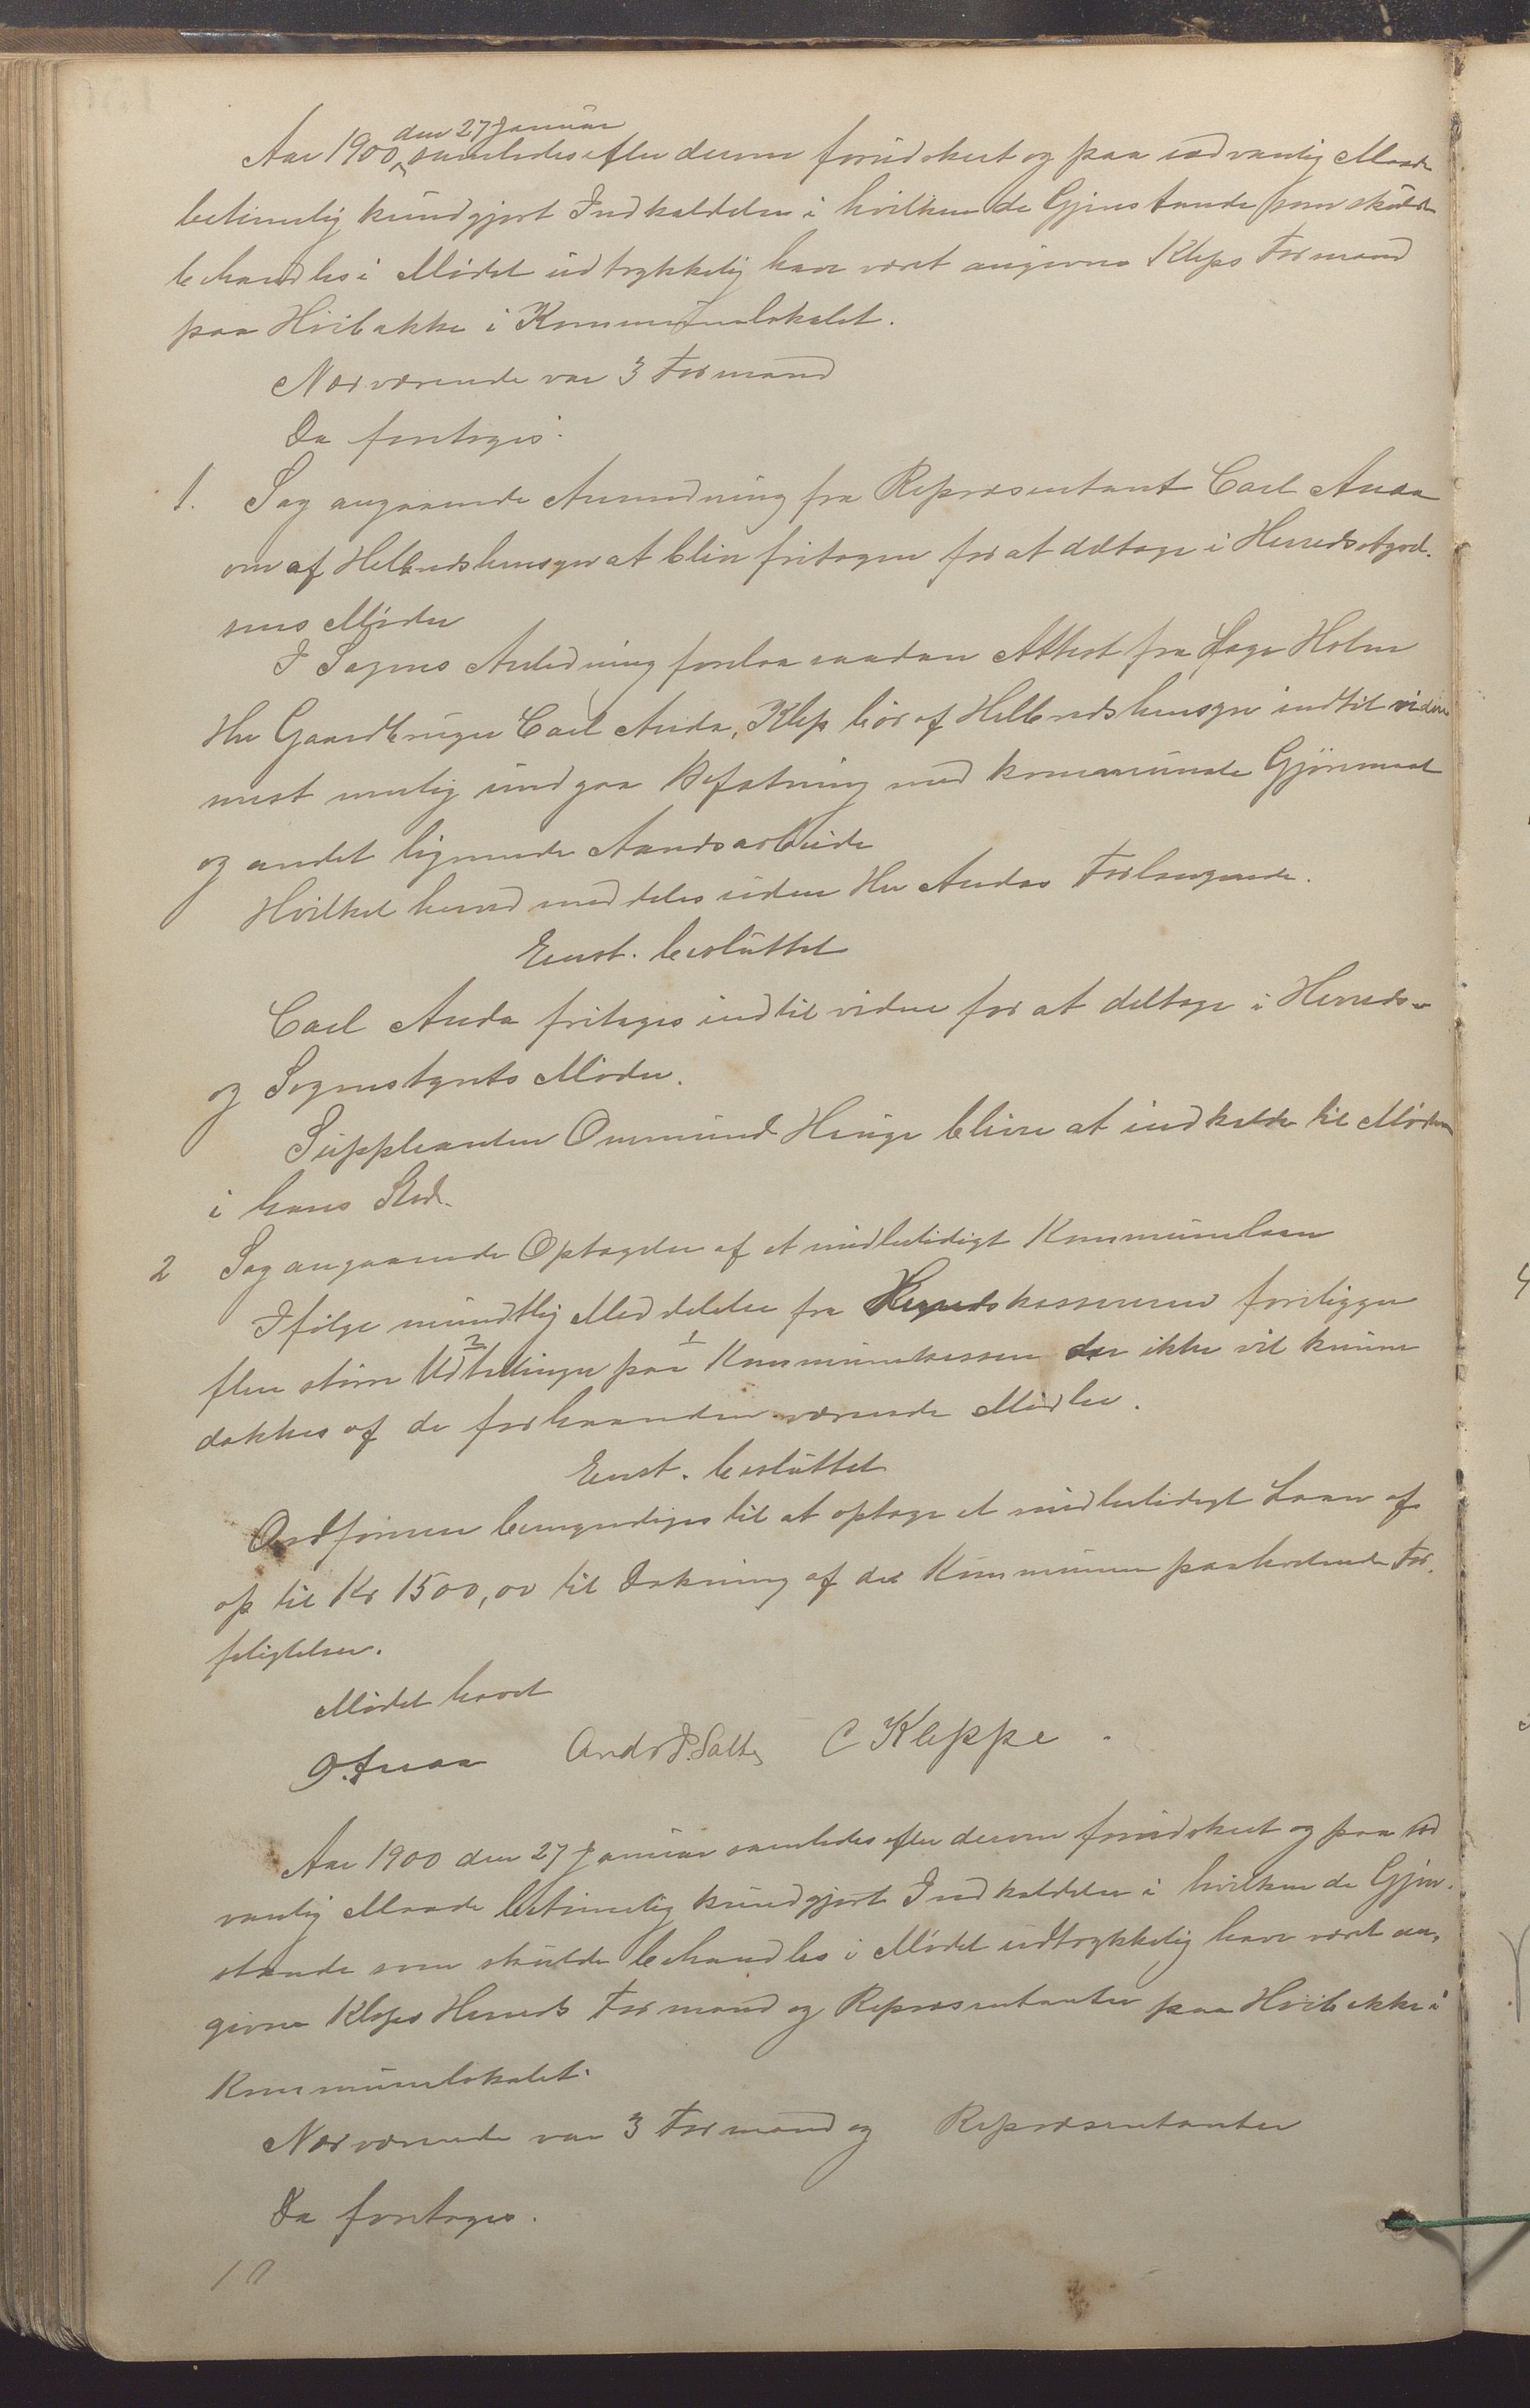 den 27 Januar
Aar 1900, samledes efter derom forudskeet og paa sædvanlig Maade
betimelig kundgjort Indkaldelse i hvilken de Gjenstande som skulde
behandles i Mødet udtrykkelig have været angivne Kleps Formænd
paa Hvibakke i Kommunelokalet.
Nærværende var 3 Formænd
Da foretoges:
1. Sag angaaende Anmodning fra Repræsentant Carl Anda
om af Helbredshensyn at blive fritagen for at deltage i Herredsstyrel-
sens Møder
I Sagens Anledning forelaa saadan Attest fra Læge Holm
Hr Gaardbruger Carl Anda, Klep bør af Helbredshensyn indtil videre
mest mulig undgaa Befatning med kommunale Gjøremaal
og andet lignende Aandsarbeide
Hvilket herved meddeles efter Hr Andas Forlangende.
Enst. besluttet
Carl Anda fritages indtil videre for at deltage i Herreds-
og Sognestyrets Møder.
Suppleanten Ommund Hauge bliver at indkalde til Møderne
i hans Sted.
2 Sag angaaende Optagelse af et midlertidigt Kommunelaan
Ifølge mundtlig Meddelelse fra Herredskassereren foreligger
flere større Udtællinger paa Kommunekassen der ikke vil kunne
dækkes af de forhaanden værende Midler.
Enst. besluttet
Ordføreren bemyndiges til at optage et midlertidigt Laan af
op til Kr 1500,00 til Dækning af det Kommunen paahvilende For-
pligtelser.
Mødet hævet
O. Anda Ands P. Salte C Kleppe.
Aar 1900 den 27 Januar samledes efter derom forudskeet og paa sæd
vanlig Maade betimelig kundgjort Indkaldelse i hvilken de Gjen-
stande som skulde behandles i Mødet udtrykkelig have været an-
givne Kleps Herreds Formænd og Repræsentanter paa Hvibakke i
Kommunelokalet.
Nærværende var 3 Formænd og Repræsentanter
Da foretoges.